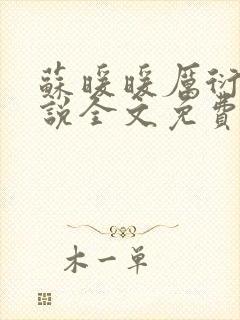 蘇暖暖厲衍
說全文免費
木一單